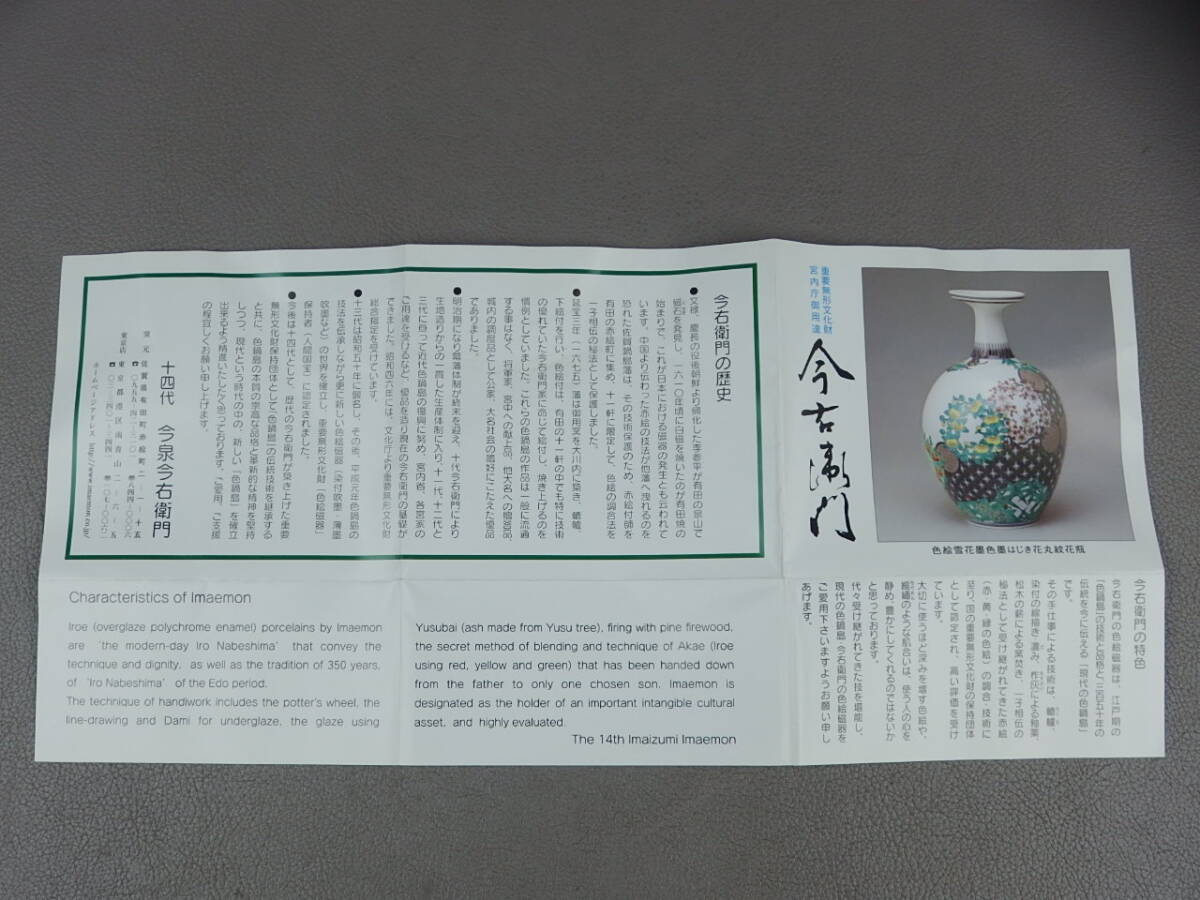 重要無形文化財
宮内庁御用達
今右衛門
色絵雪花墨色墨はじき花丸紋花瓶
今右衛門の特色
今右衛門の色絵磁器は、江戸期の
「色鍋島」の技術と品格と、三百五十年の
伝統を今に伝える「現代の色鍋島」
です。
その手仕事による技術は、轆轤、
染付の線描き・濃み、柞灰による釉薬、
松木の薪による窯焚き、一子相伝の
秘法として受け継がれてきた赤絵
(赤・黄・緑の色絵)の調合・技術に
至り、国の重要無形文化財の保持団体
として認定され、高い評価を受け
ています。
大切に使うほど深みを増す色絵や、
静め、豊かにしてくれるのではないか
と思っております。
代々受け継がれてきた技を堪能し、
現代の色鍋島・今右衛門の色絵磁器を
ご愛用下さいますようお願い申し
あげます。
今右衛門の歴史
●文禄、慶長の役後朝鮮より帰化した李参平が有田の泉山で
磁石を発見し、一六一〇年頃に白磁を焼いたのが有田焼の
始まりで、これが日本における磁器の発生とも云われて
います。中国より伝わった赤絵の技法が他藩へ洩れるのを
恐れた佐賀鍋島藩は、その技術保護のため、赤絵付師を
有田の赤絵町に集め、十一軒に限定して、色絵の調合法を
一子相伝の秘法として保護しました。
●延宝三年(一六七五)藩は御用窯を大川内に築き、轆轤、
下絵付を行い、色絵付は、有田の十一軒の中でも特に技術
の優れていた今右衛門家に命じて絵付し、焼き上げるのを
慣例としていました。これらの色鍋島の作品は一般に流通
する事はなく、将軍家、宮中への献上品、他大名への贈答品
城内の調度品として公家、大名社会の嗜好にこたえた優品
でありました。
●明治期になり鍋藩体制が終末を迎え、十代今右衛門により
生地造りからの一貫した生産体制に入り、十一代、十二代と
三代に亘って近代色鍋島の復興に努め、宮内省、各宮家の
ご用達を受けるなど、優品を造り現在の今右衛門の基礎が
できました。昭和四六年には、文化庁より重要無形文化財
総合指定を受けています。
●十三代は昭和五十年に襲名し、その後、平成元年色鍋島の
技法を伝承しながら更に新しい色絵磁器(染付吹墨・薄墨
吹墨など)の世界を確立し、重要無形文化財「色絵磁器」
保持者(人間国宝)に認定されました。
●今後は十四代として、歴代の今右衛門が築き上げた重要
無形文化財保持団体として「色鍋島」の伝統技術を継承する
と共に、色鍋島の本質の崇高な品格と革新的な精神を堅持
しつつ、現代という時代の中の、新しい「色鍋島」を確立
出来るよう精進いたしたく思っております。ご愛用、ご支援
の程宜しくお願い申し上げます。
十四代 今泉今右衛門
窯元 佐賀県有田町赤絵町二-一-十五
東京店 東京都港区南青山二-六-五
ホームページアドレス http://www.imaemon.co.jp/
Characteristics of Imaemon
Iroe (overglaze polychrome enamel) porcelains by Imaemon
are ‘the modern-day Iro Nabeshima’ that convey the
technique and dignity, as well as the tradition of 350 years,
of ‘Iro Nabeshima’ of the Edo period.
The technique of handiwork includes the potter’s wheel, the
line-drawing and Dami for underglaze, the glaze using
Yusubai (ash made from Yusu tree), firing with pine firewood,
the secret method of blending and technique of Akae (Iroe
using red, yellow and green) that has been handed down
from the father to only one chosen son. Imaemon is
designated as the holder of an important intangible cultural
asset, and highly evaluated.
The 14th Imaizumi Imaemon